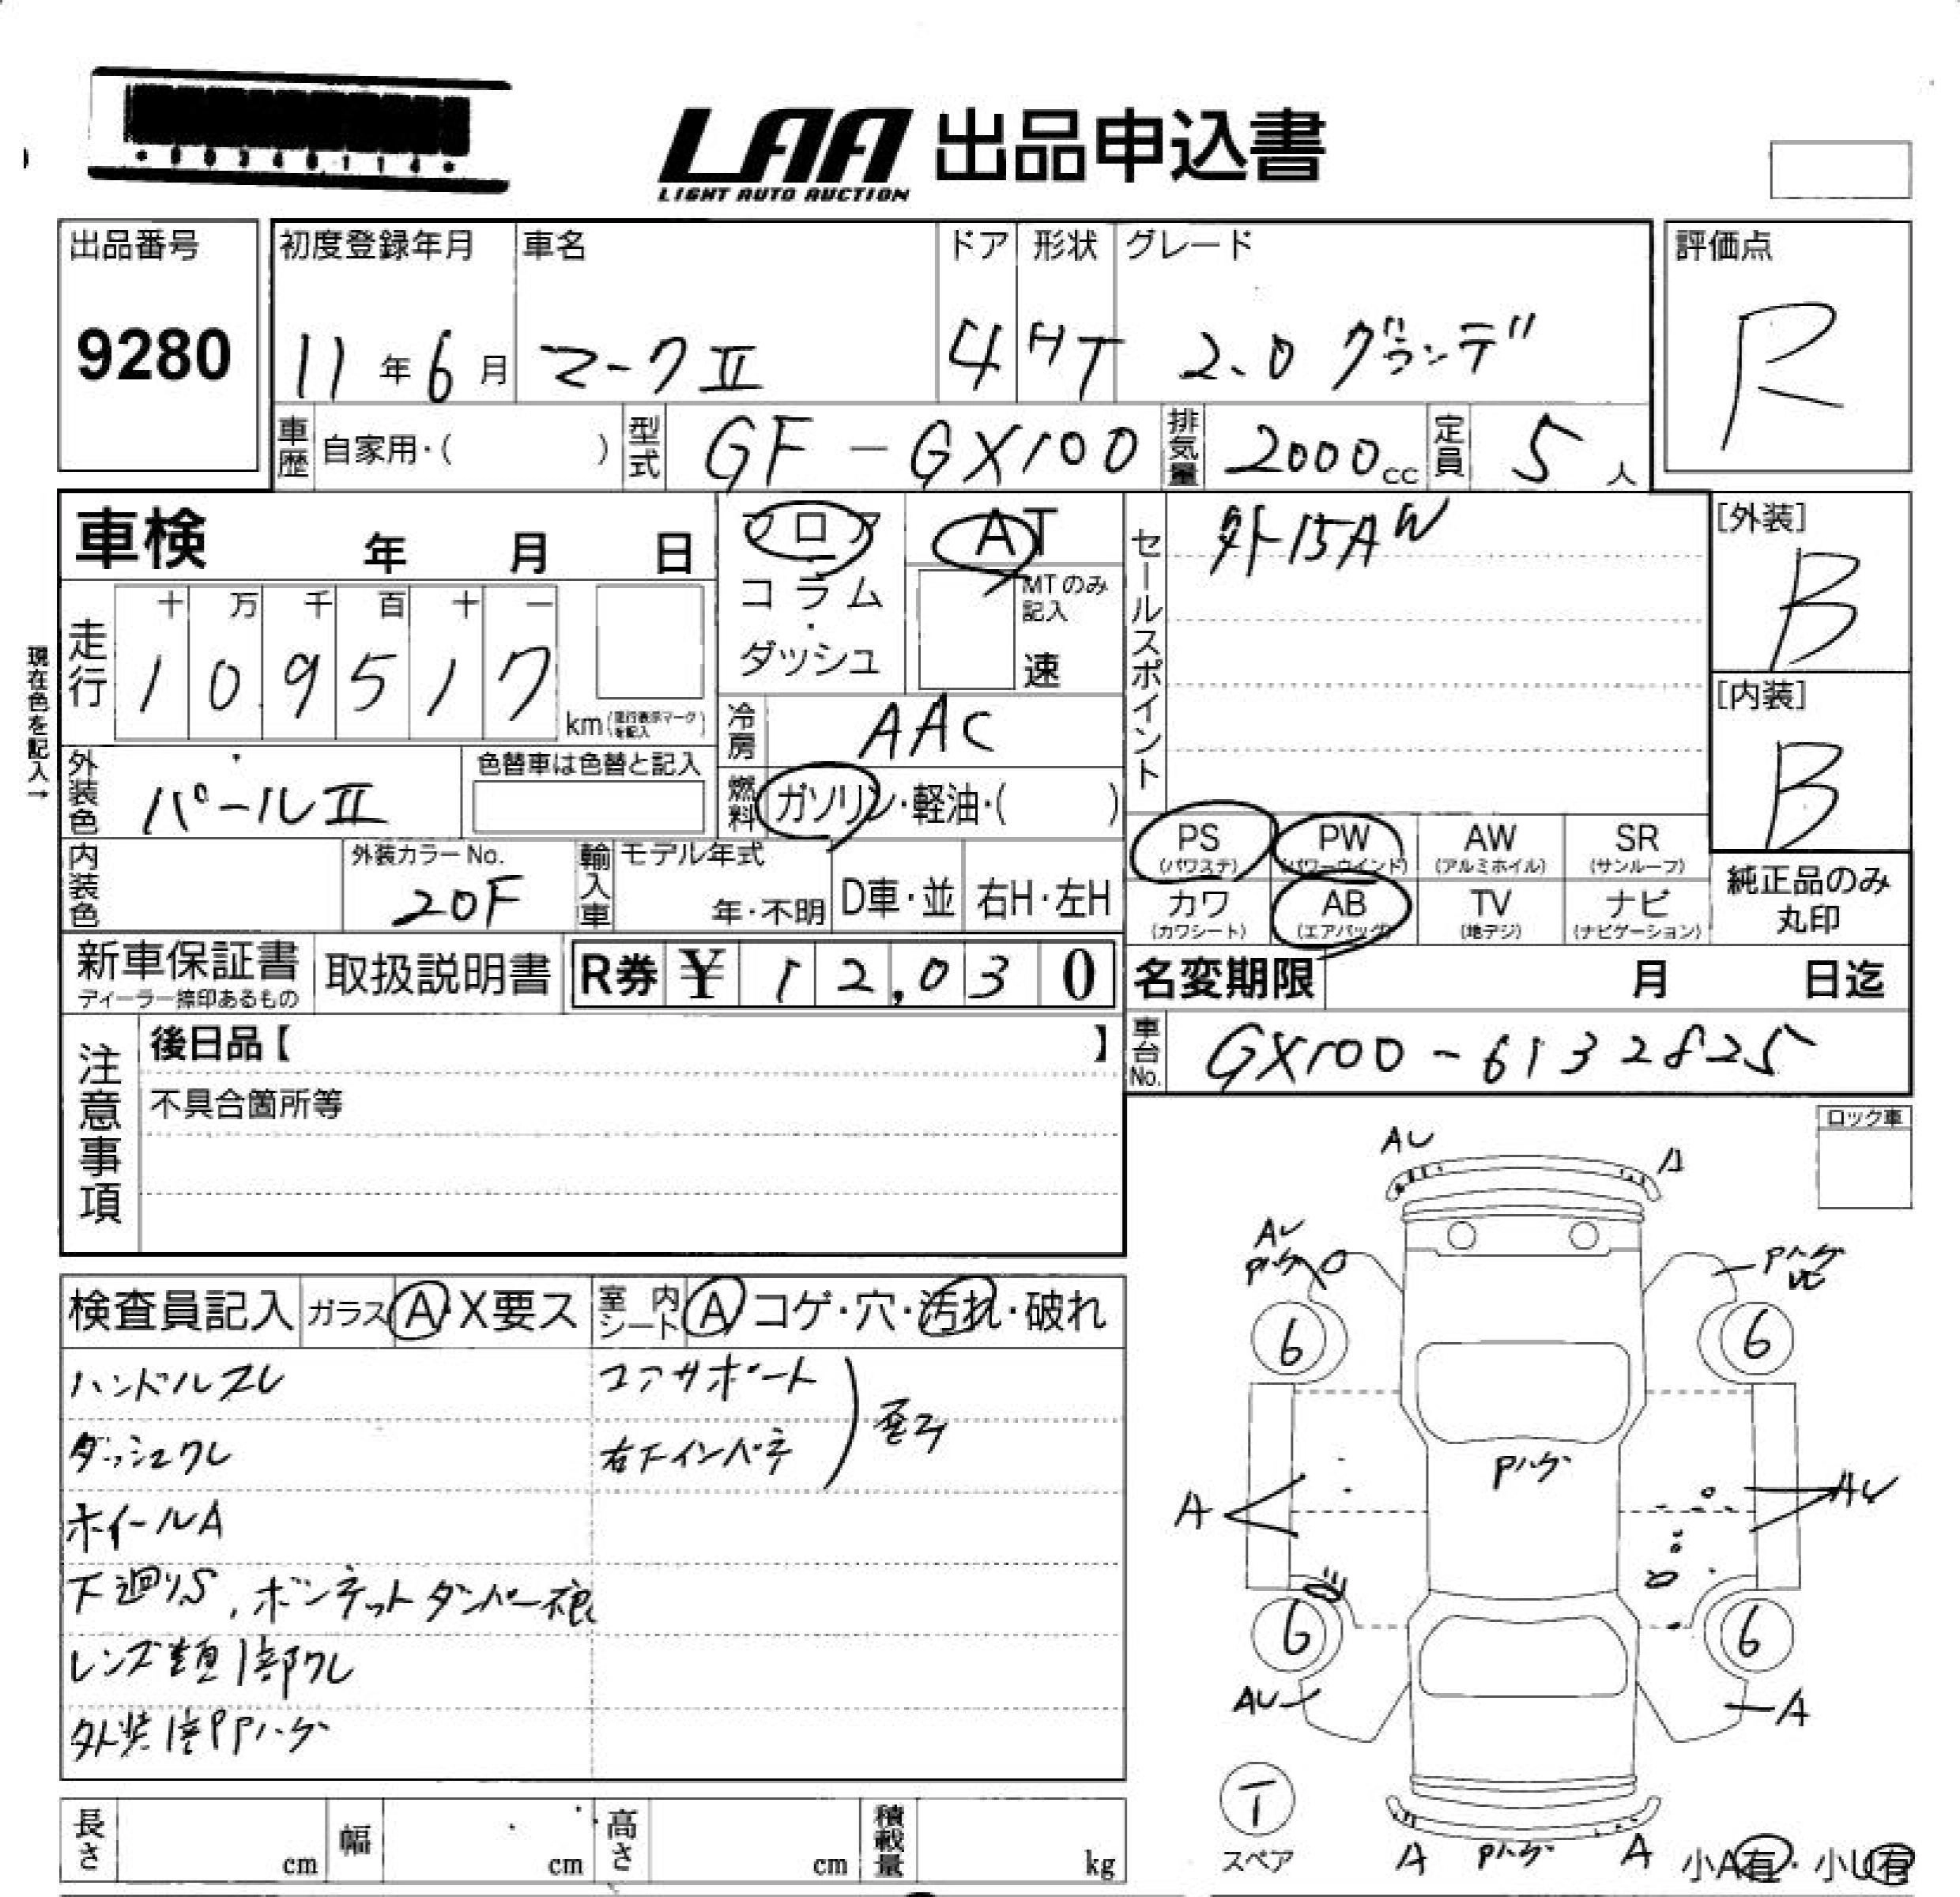 ・00340114・
LAA 出品申込書
LIGHT AUTO AUCTION
出品番号 初度登録年月 車名 ドア 形状 グレード 評価点
9280 11年6月 マークⅡ 4 HT 2.0 グランデ R
車歴 自家用・( ) 型式 GF-GX100 排気量 2000cc 定員 5人
車検 年 月 日 フロア・コラム・ダッシュ AT MTのみ記入 速
セールスポイント 外15AW
[外装] B
[内装] B
現在色を記入→
走行 十 万 千 百 十 一
109517 km (走行表示マークを記入)
冷房 AAC
外装色 パールⅡ 色替車は色替と記入
燃料 ガソリン・軽油・( )
内装色 外装カラーNo. 20F 輸入車 モデル年式 年・不明 D車・並 右H・左H
PS (パワステ) PW (パワーウインド) AW (アルミホイル) SR (サンルーフ)
カワ (カワシート) AB (エアバッグ) TV (地デジ) ナビ (ナビゲーション)
純正品のみ丸印
新車保証書 ディーラー捺印あるもの 取扱説明書 R券 ¥ 12,030
名変期限 月 日迄
車台No. GX100-6132825
注意事項 後日品【 】
不具合箇所等
ロック車
検査員記入 ガラス A・X要ス 室内シート A コゲ・穴・汚れ・破れ
ハンドルスレ コアサポート
ダッシュワレ 右下インパネ
ホイールA
下廻りS、ボンネットダンパー
レンズ類1部ワレ
外装1部Pハゲ
AU A
AU Pハゲ
Pハゲ
6 6
Pハゲ
A AU
6 6
AU A
T スペア
A Pハゲ A
小A有・小U有
長さ cm 幅 cm 高さ cm 積載量 kg